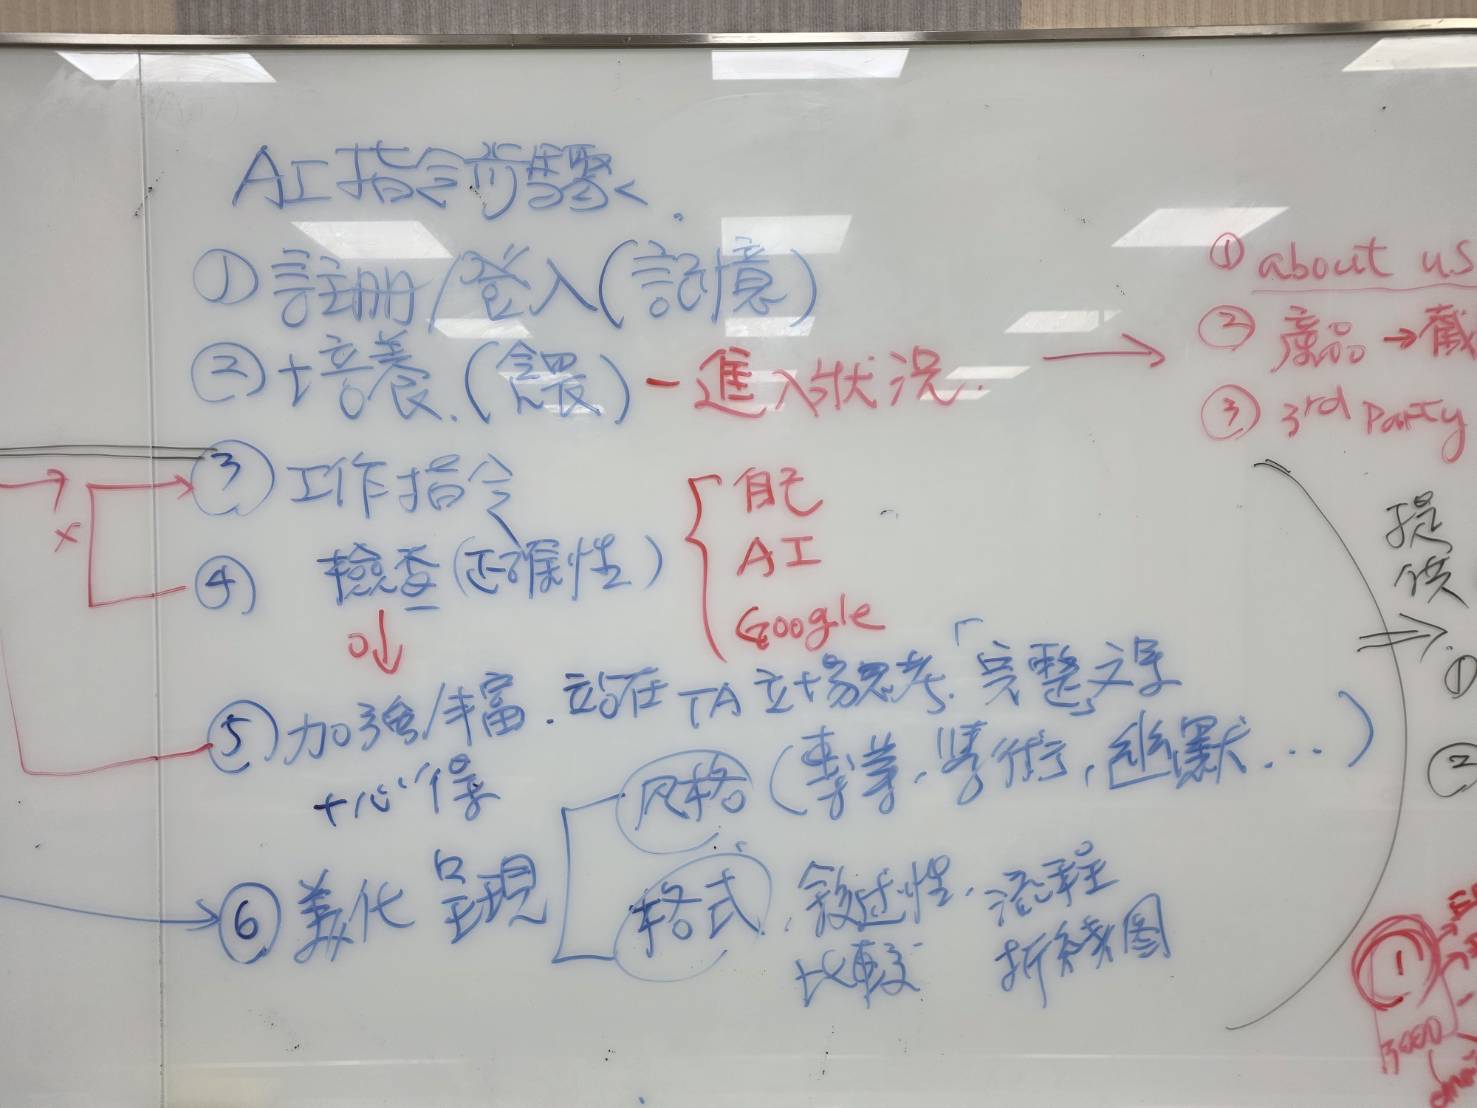 AI指令步驟
① 註冊/登入(記憶)
② 培養.(餵) - 進入狀況 →
③ 工作指令
④ 檢查(正確性)
自己
AI
Google
x
o↓
⑤ 加強/丰富.站在TA立場思考.「完整」文字
+心得
风格(專業,學術,幽默...)
⑥ 美化 呈現
格式.敘述性.流程
比較 折綫圖
① about us
② 產品→截
③ 3rd Party
提供
⇒
①
②
1